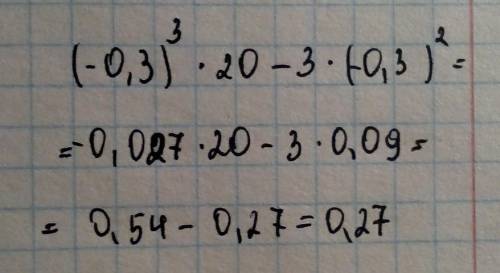 (-0,3)³ · 20 - 3 · (-0,3)² =
= -0,027 · 20 - 3 · 0,09 =
= 0,54 - 0,27 = 0,27